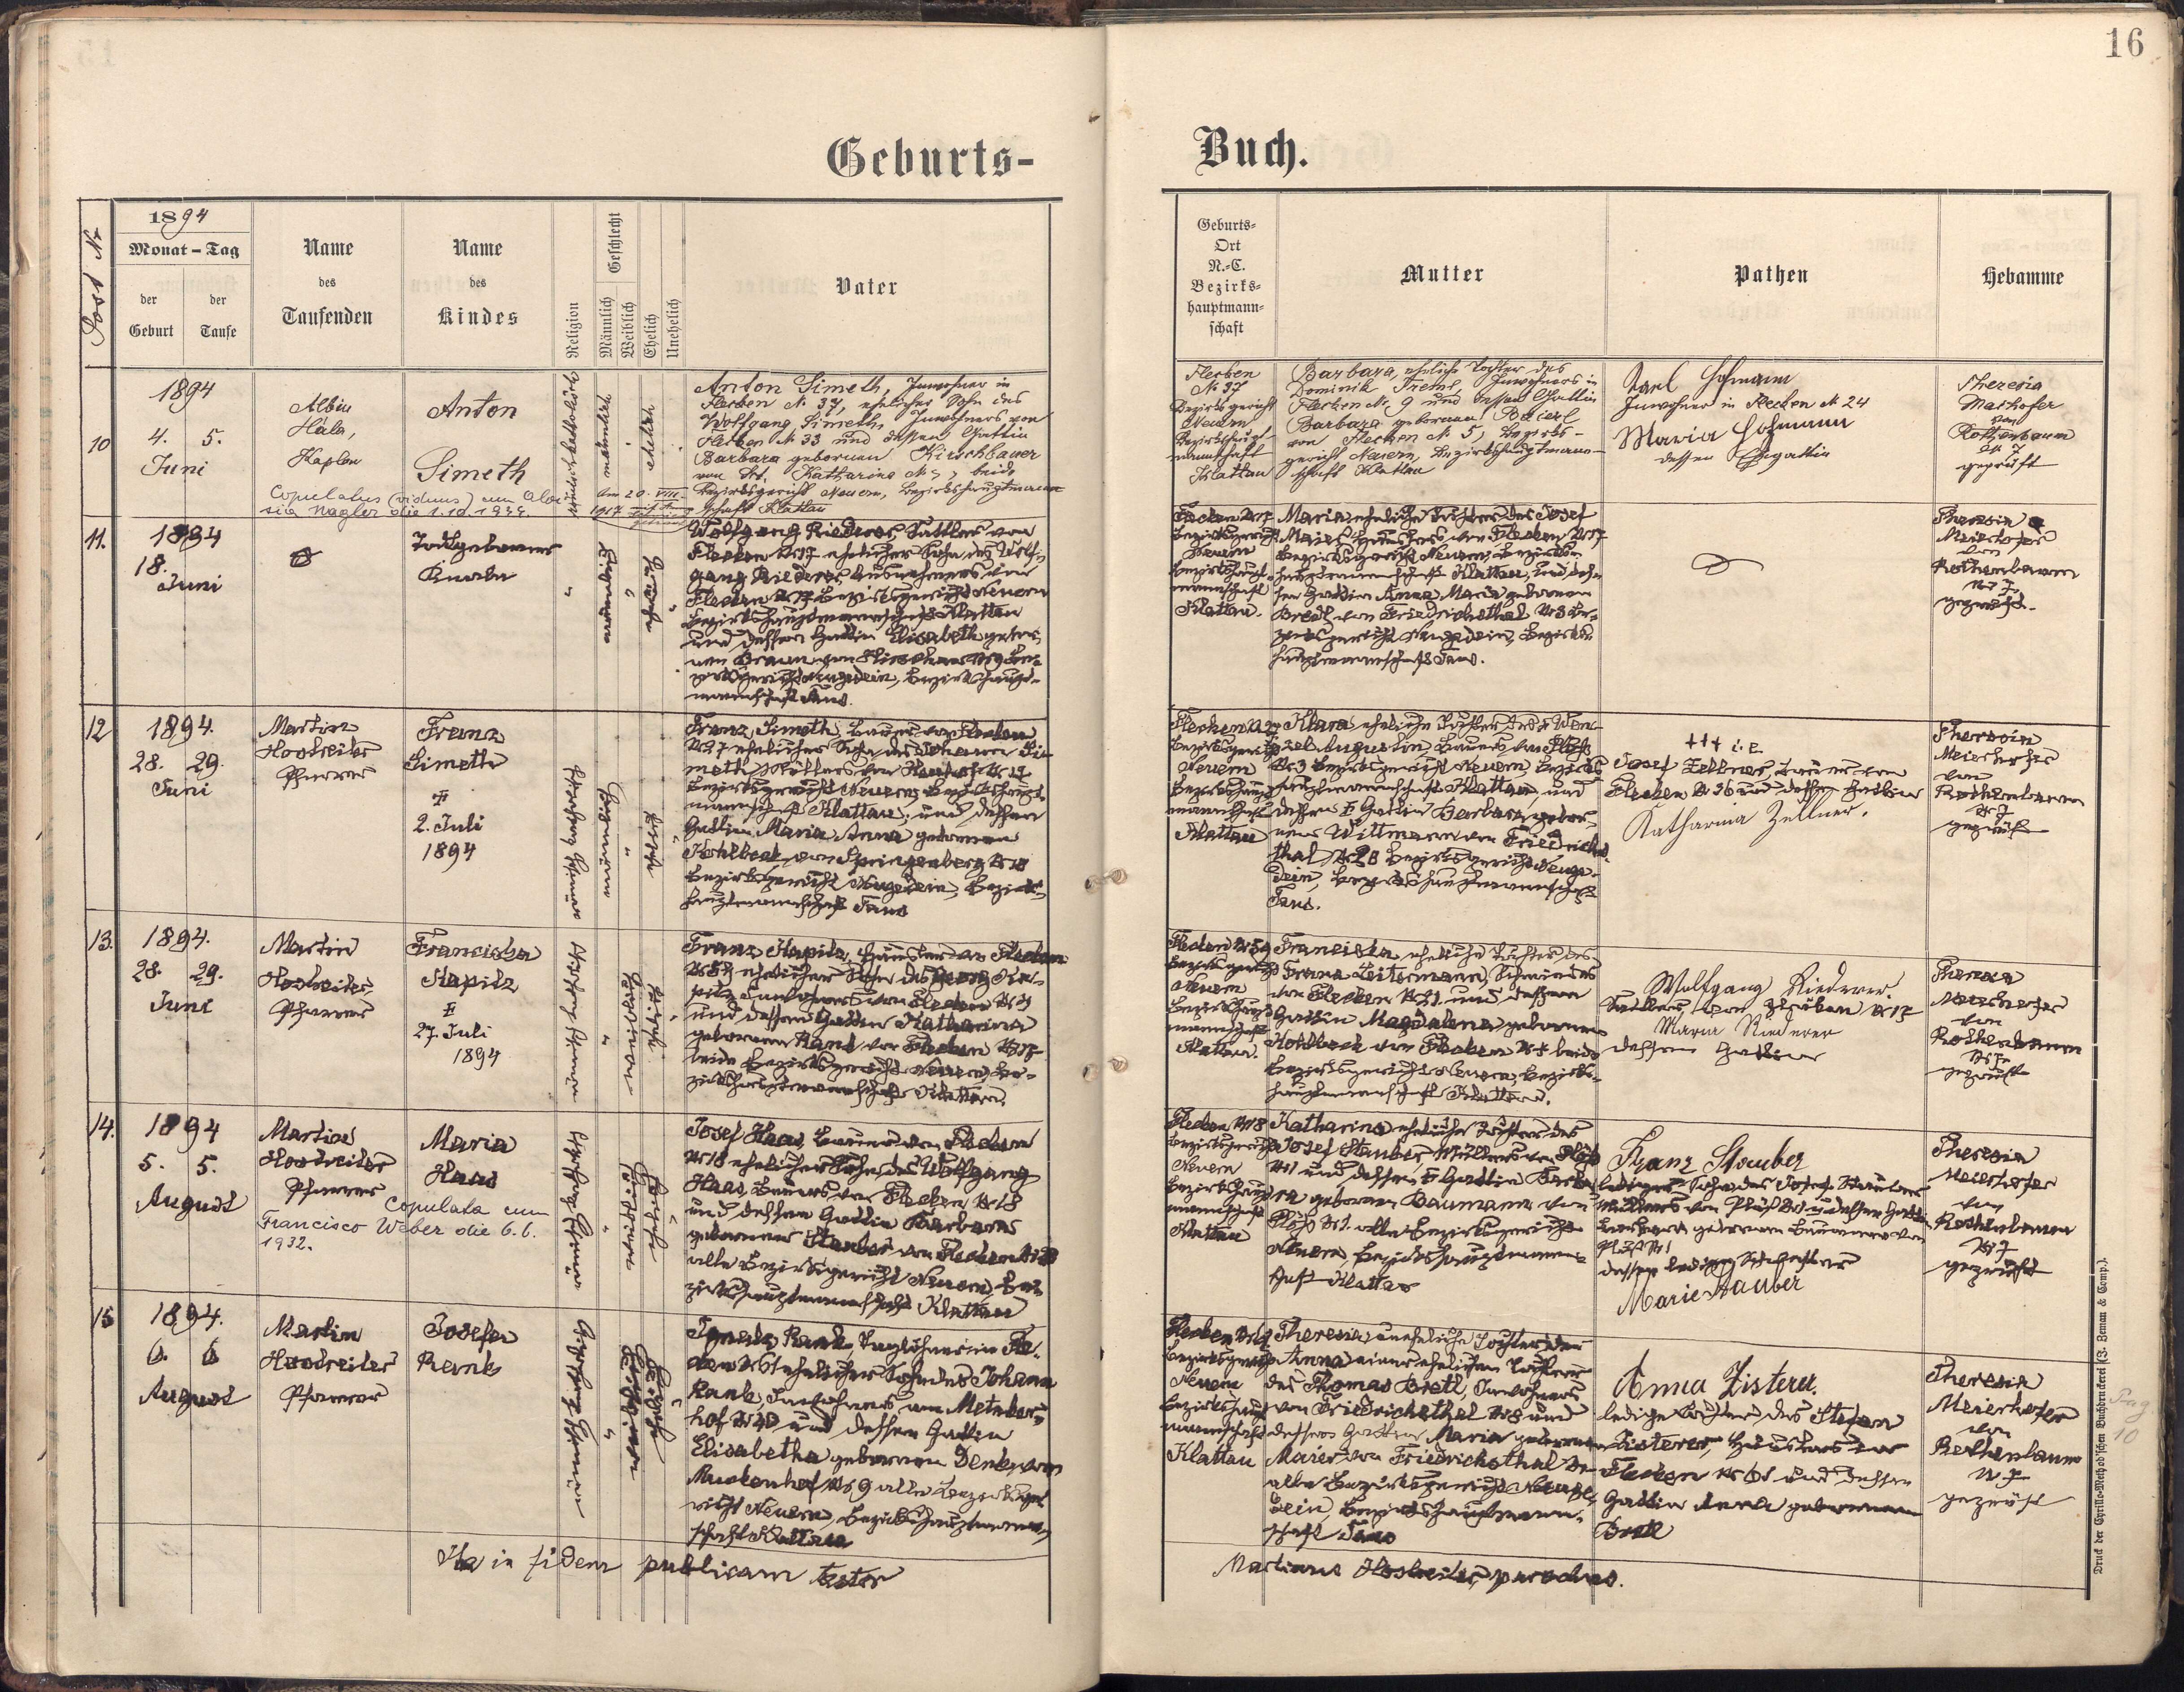 16
Geburts-
Buch.
Post Nr
1894
Monat – Tag
der Geburt
der Taufe
Name des Taufenden
Name des Kindes
Religion
Geschlecht
Männlich
Weiblich
Ehelich
Unehelich
Vater
Geburts-
Ort
N.-C.
Bezirks-
hauptmann-
schaft
Mutter
Pathen
Hebamme
10
1894
4. 5.
Juni
Albin
Hála,
Kaplan
Anton
Simeth
Copulatus (viduus) cum Aloi-
sia Nagler die 1.10.1934.
Anton Simeth, Inwohner in
Flecken N. 37, ehelicher Sohn des
Wolfgang Simeth, Inwohners von
Flecken N. 33 und dessen Gattin
Barbara gebornen Kirschbauer
von St. Katharina N. 5, beide
Bezirksgericht Neuern, Bezirkshauptmann-
schaft Klattau
Flecken
N. 37
Bezirksgericht
Neuern
Bezirkshaupt-
mannschaft
Klattau
Barbara, eheliche Tochter des
Dominik Treml, Inwohners in
Flecken N. 9 und dessen Gattin
Barbara gebornen Baierl
von Flecken N. 5, Bezirks-
gericht Neuern, Bezirkshauptmann-
schaft Klattau
Karl Hofmann
Inwohner in Flecken N. 24
Maria Hofmann
dessen Ehegattin
Theresia
Maihofer
von
Rothenbaum
N. 7
geprüft
11.
1894
18.
Juni
Todtgeborner
Knabe
Wolfgang Riederer, Sattler von
Flecken Nr 17 ehelicher Sohn des Wolf-
gang Riederer, Ausnehmers von
Flecken Nr 17 Bezirksgericht Neuern
Bezirkshauptmannschaft Klattau
und dessen Gattin Elisabeth gebor-
nen Braun von
Bezirksgericht Neugedein, Bezirkshaupt-
mannschaft Taus.
Flecken Nr 17
Bezirksgericht
Neuern
Bezirkshaupt-
mannschaft
Klattau.
Maria eheliche Tochter des Josef
Maier, Häuslers von Flecken Nr 17
Bezirksgericht Neuern, Bezirks-
hauptmannschaft Klattau, und des-
sen Gattin Anna Maria gebornen
Bredl von Friedrichsthal Nr 8 Be-
zirksgericht Neugedein, Bezirks-
hauptmannschaft Taus.
Theresia
Meierhofer
von
Rothenbaum
Nr 7
geprüft.
12
1894.
28. 29.
Juni
Martin
Hostreiter
Pfarrer
Franz
Simeth
2. Juli
1894
Franz Simeth, Bauer von Flecken
Nr 27 ehelicher Sohn des Johann Si-
meth, Müllers von
Bezirksgericht Neuern, Bezirkshaupt-
mannschaft Klattau, und dessen
Gattin Maria Anna gebornen
Kohlbeck von Springenberg Nr 18
Bezirksgericht Neugedein, Bezirks-
hauptmannschaft Taus
Flecken Nr 27
Bezirksgericht
Neuern
Bezirkshaupt-
mannschaft
Klattau
Klara eheliche Tochter des Wen-
zel Augustin, Bauers von Plöß
Nr 3 Bezirksgericht Neuern, Bezirks-
hauptmannschaft Klattau, und
dessen Gattin Barbara gebor-
nen Wittmann von Friedrichs-
thal Nr 28 Bezirksgericht Neuge-
dein, Bezirkshauptmannschaft
Taus.
+++ i. e.
Josef Zellner, Bauer von
Flecken Nr 36 und dessen Gattin
Katharina Zellner.
Theresia
Meierhofer
von
Rothenbaum
Nr 7
geprüft
13.
1894.
28. 29.
Juni
Martin
Hostreiter
Pfarrer
Francisca
Kapitz
27. Juli
1894
Franz Kapitz, Häusler von Flecken
Nr 54 ehelicher Sohn des Georg Ka-
pitz Inwohners von Flecken Nr 31
und dessen Gattin Katharina
gebornen Rank von Flecken Nr 17
beide Bezirksgericht Neuern, Be-
zirkshauptmannschaft Klattau.
Flecken Nr 54
Bezirksgericht
Neuern
Bezirkshaupt-
mannschaft
Klattau.
Franciska eheliche Tochter des
Franz Leitermann, Schmiedes
von Flecken Nr 21 und dessen
Gattin Magdalena gebornen
Kohlbeck von Flecken beide
Bezirksgericht Neuern, Bezirks-
hauptmannschaft Klattau.
Wolfgang Riederer.
Sattler von Flecken Nr 17
Maria Riederer
dessen Gattin
Theresia
Meierhofer
von
Rothenbaum
Nr 7
geprüft
14.
1894
5. 5.
August
Martin
Hostreiter
Pfarrer
Maria
Haas
Copulata cum
Francisco Weber die 6.6.
1932.
Josef Haas, Bauer von Flecken
Nr 18 ehelicher Sohn des Wolfgang
Haas, Bauers von Flecken Nr 18
und dessen Gattin Barbara
gebornen Stauber von Flecken
alle Bezirksgericht Neuern, Be-
zirkshauptmannschaft Klattau
Flecken Nr 18
Bezirksgericht
Neuern
Bezirkshaupt-
mannschaft
Klattau
Katharina eheliche Tochter des
Josef Stauber, Müllers von Plöß
Nr 1 und dessen Gattin Barba-
ra gebornen Baumann von
Plöß Nr 1. alle Bezirksgericht
Neuern, Bezirkshauptmann-
schaft Klattau
Franz Stauber
lediger Sohn des Josef Stauber
Müllers von Plöß Nr 1 u dessen Gattin
Barbara gebornen Baumann von
Plöß Nr 1
dessen ledige Schwester
Marie Stauber
Theresia
Meierhofer
von
Rothenbaum
Nr 7
geprüft
15
1894.
6. 6
August
Martin
Hostreiter
Pfarrer
Josefa
Rank
Ignatz Rank, Taglöhner in Fle-
cken ehelicher Sohn des Johann
Rank, Inwohners von
hof und dessen Gattin
Elisabetha gebornen Denk von
Nr 9 alle Bezirksge-
richt Neuern, Bezirkshauptmann-
schaft Klattau
Flecken
Bezirksgericht
Neuern
Bezirkshaupt-
mannschaft
Klattau
Theresia uneheliche Tochter der
Anna einer ehelichen Tochter
des Thomas Bretl, Inwohners
von Friedrichsthal Nr 8 und
dessen Gattin Maria gebornen
Maier von Friedrichsthal
alle Bezirksgericht Neuge-
dein, Bezirkshauptmann-
schaft Taus
Anna Zisterer.
ledige Tochter des Stefan
Zisterer, Häuslers von
Flecken und dessen
Gattin gebornen
Bretl
Theresia
Meierhofer
von
Rothenbaum
N. 7
geprüft
Ita in fidem publicam testor
Martinus Hostreiter, parochus.
Druck der Cyrillo-Method'schen Buchdruckerei (J. Zeman & Comp.).